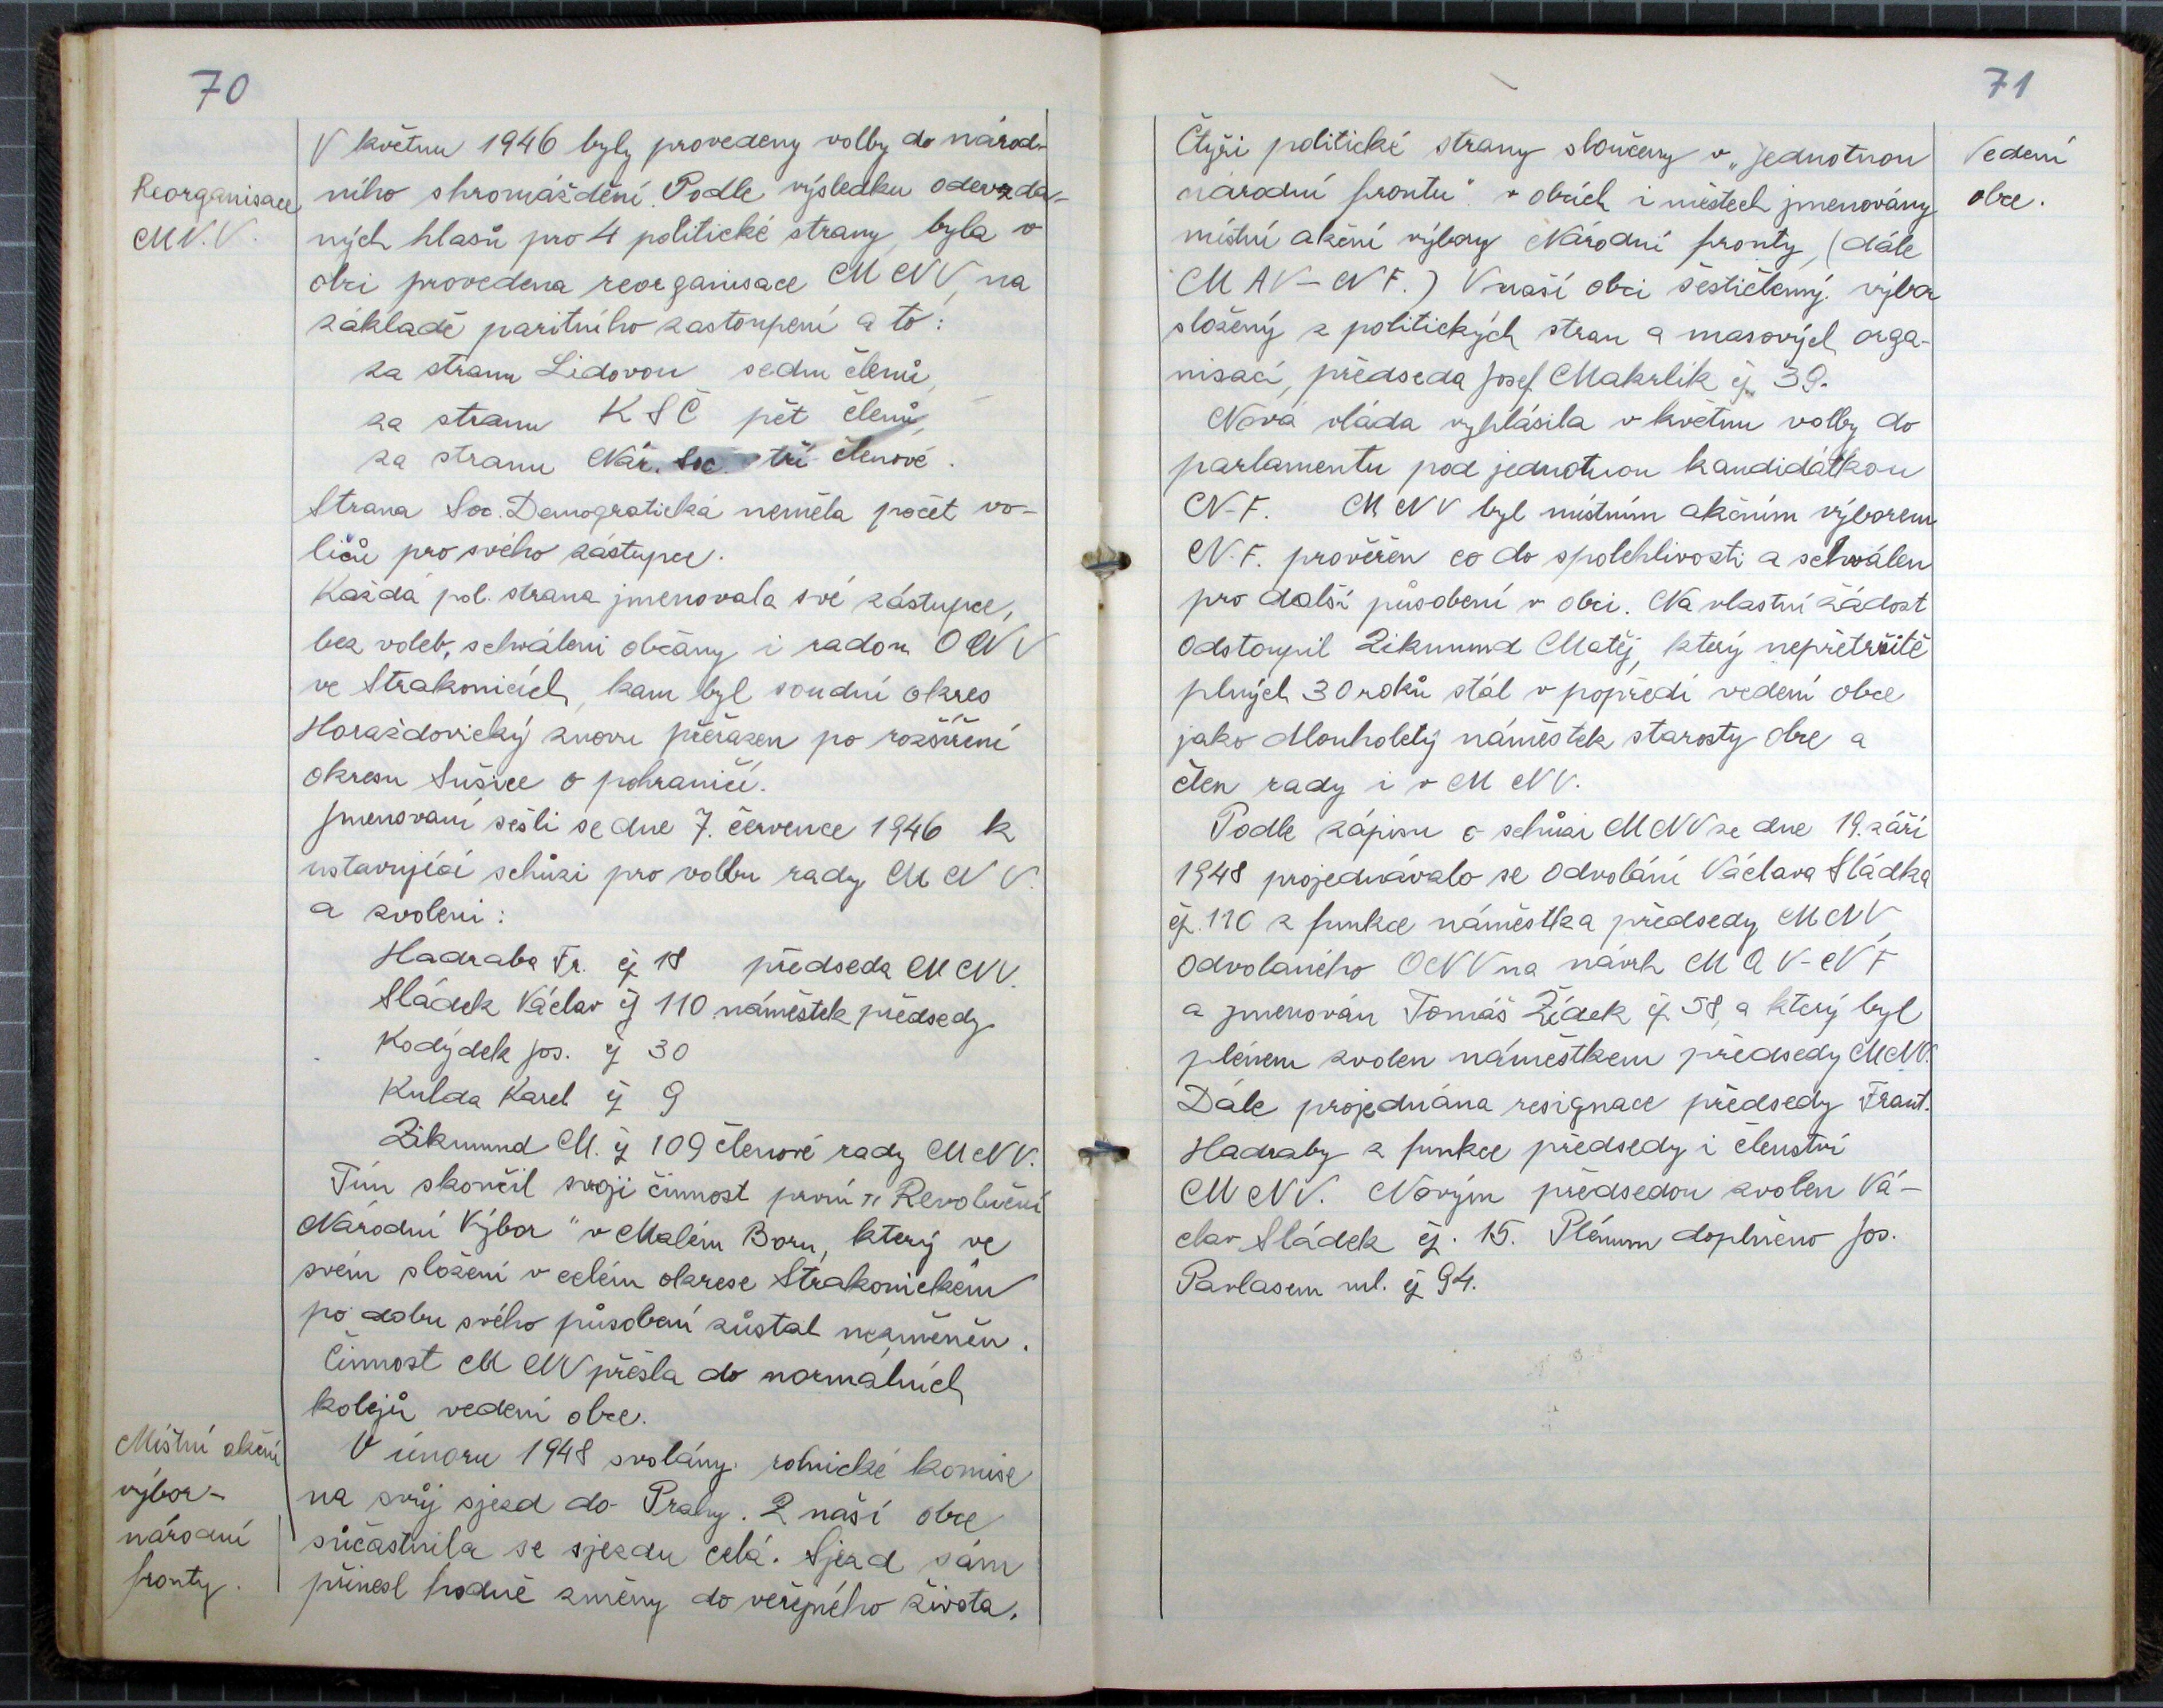 70
Reorganisace
M.N.V.
V květnu 1946 byly provedeny volby do národ-
ního shromáždění. Podle výsledku odevzda-
ných hlasů pro 4 politické strany, byla v
obci provedena reorganisace MNV, na
základě paritního zastoupení a to:
za stranu Lidovou sedm členů,
za stranu KSČ pět členů,
za stranu Nár. Soc. tři členové.
Strana Soc. Demogratická neměla počet vo-
ličů pro svého zástupce.
Každá pol. strana jmenovala své zástupce,
bez voleb, schváleni občany i radou ONV
ve Strakonicích, kam byl soudní okres
Horažďovický znovu přeřazen po rozšíření
okresu Sušice o pohraničí.
Jmenovaní sešli se dne 7. července 1946 k
ustavující schůzi pro volbu rady MNV.
a zvoleni:
Hadraba Fr. čj 18 předseda MNV.
Sládek Václav čj 110 náměstek předsedy
Kodýdek Jos. čj 30
Kulda Karel čj 9
Zikmund M. čj 109 členové rady MNV.
Tím skončil svoji činnost první „Revoluční
Národní Výbor" v Malém Boru, který ve
svém složení v celém okrese Strakonickém
po dobu svého působení zůstal nezměněn.
Činnost MNV přešla do normálních
kolejů vedení obce.
Místní akční
výbor-
národní
fronty.
V únoru 1948 svolány rolnické komise
na svůj sjezd do Prahy. Z naší obce
súčastnila se sjezdu celá. Sjezd sám
přinesl hodně změny do veřejného života.
71
Vedení
obce.
Čtyři politické strany sloučeny v „Jednotnou
národní frontu" v obcích i městech jmenovány
místní akční výbory Národní fronty, (dále
MAV-NF.) V naší obci šestičlenný výbor
složený z politických stran a masových orga-
nisací, předseda Josef Makrlík čj. 39.
Nová vláda vyhlásila v květnu volby do
parlamentu pod jednotnou kandidátkou
N-F. MNV byl místním akčním výborem
N.F. prověřen co do spolehlivosti a schválen
pro další působení v obci. Na vlastní žádost
odstoupil Zikmund Matěj, který nepřetržitě
plných 30 roků stál v popředí vedení obce
jako dlouholetý náměstek starosty obce a
člen rady i v MNV.
Podle zápisu o schůzi MNV ze dne 19. září
1948 projednávalo se odvolání Václava Sládka
čj. 110 z funkce náměstka předsedy MNV,
odvolaného ONV na návrh MAV-NF
a jmenován Tomáš Žídek čj. 58, a který byl
plénem zvolen náměstkem předsedy MNV.
Dále projednána resignace předsedy Frant.
Hadraby z funkce předsedy i členství
MNV. Novým předsedou zvolen Vá-
clav Sládek čj. 15. Plénum doplněno Jos.
Pavlasem ml. čj 94.